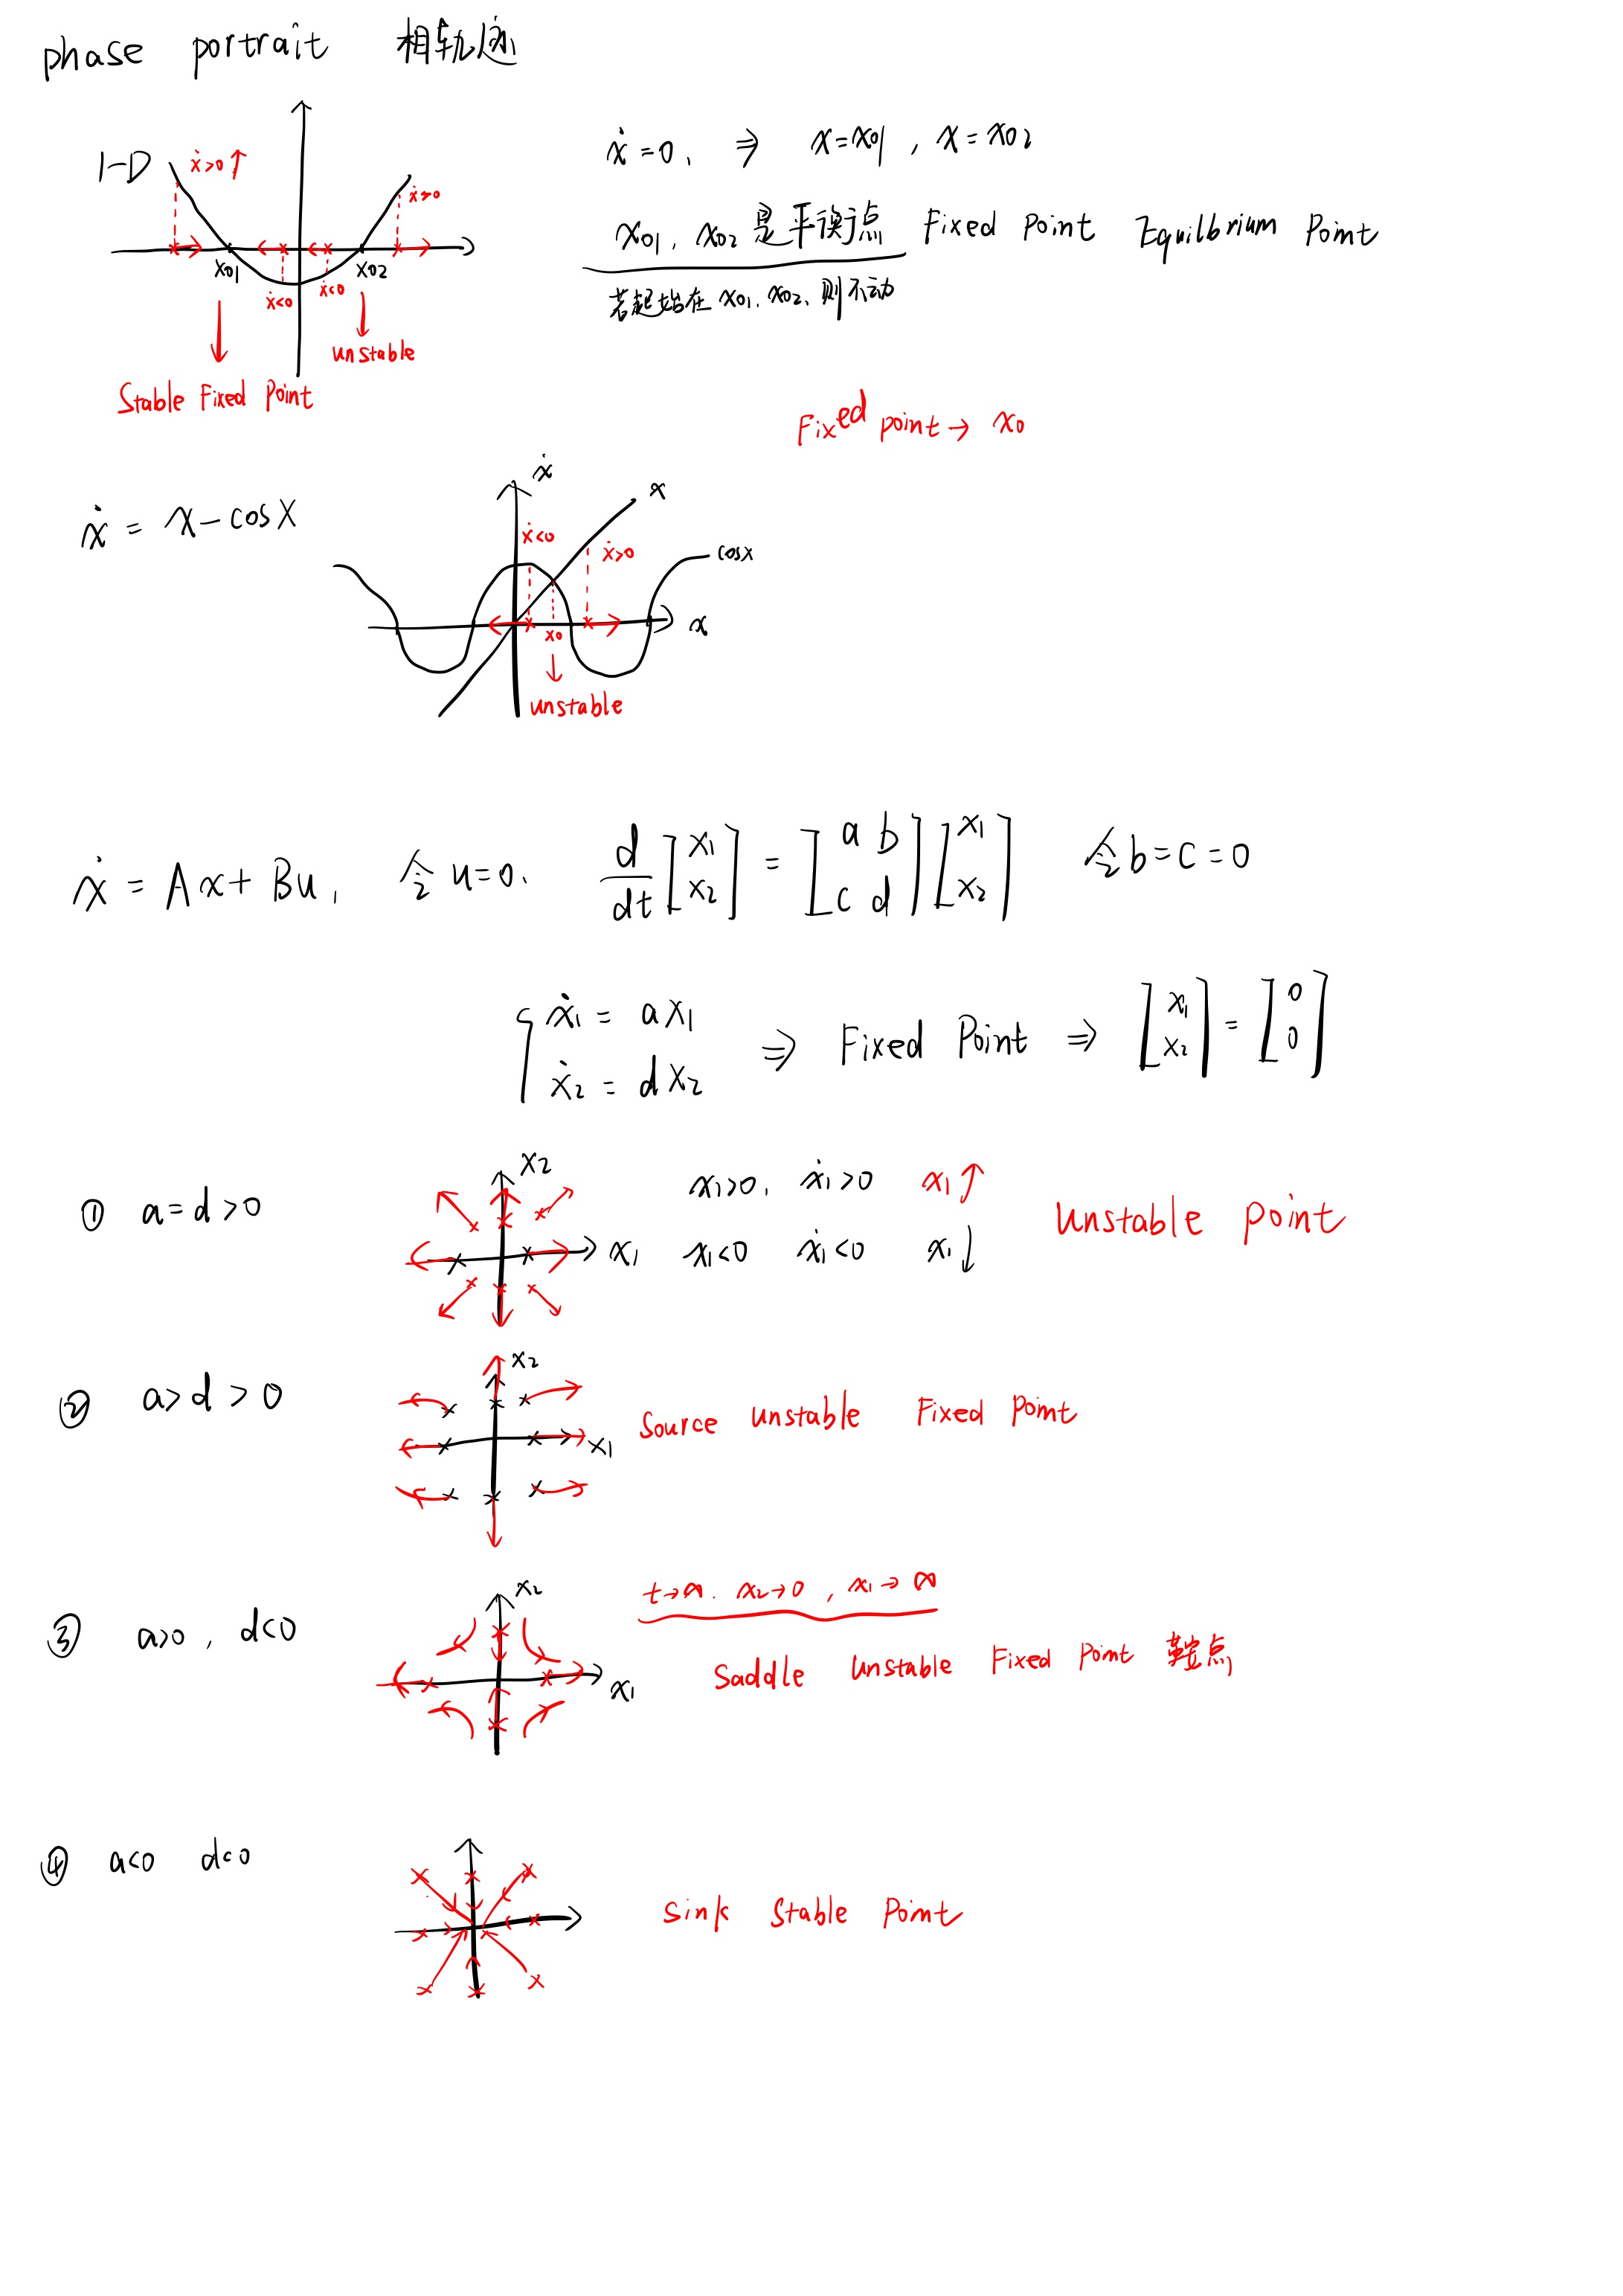 phase portrait 相轨迹
1-D ẋ>0↑ ẋ>0
x01 x02
ẋ<0 ẋ<0
unstable
Stable Fixed Point
ẋ=0, ⇒ x=x01, x=x02
x01, x02 是平衡点 Fixed Point Equilbrium Point
若起始在 x01, x02, 则不动
Fixed point → x0
ẋ = x-cosx
ẋ x
ẋ<0 ẋ>0 cosx
x0 x
unstable
ẋ = Ax+Bu, 令u=0, d/dt [x1 x2] = [a b c d] [x1 x2] 令b=c=0
{ẋ1 = ax1 ẋ2 = dx2 ⇒ Fixed Point ⇒ [x1 x2] = [0 0]
① a=d>0 x2 x1
x1>0, ẋ1>0 x1↑
x1<0 ẋ1<0 x1↓
Unstable point
② a>d>0 x2 x1 Source Unstable Fixed Point
③ a>0, d<0 x2 x1
t→∞. x2→0, x1→∞
Saddle Unstable Fixed Point 鞍点
④ a<0 d<0 Sink Stable Point